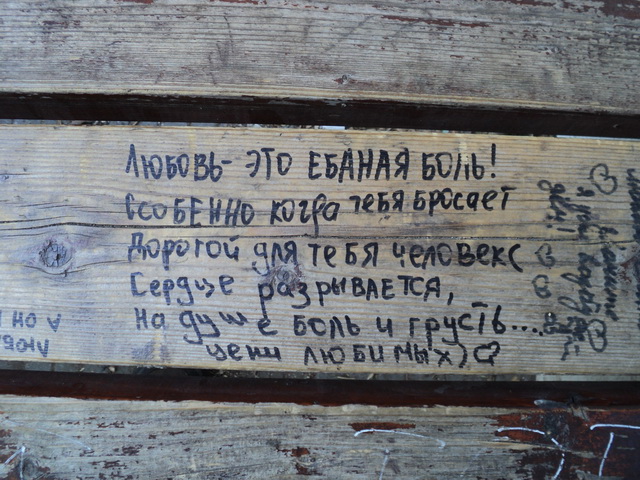 Любовь- это ебаная боль!
Особенно когда тебя бросает
Дорогой для тебя человек(
Сердце разрывается,
на душе боль и грусть....
цени любимых)♡
А он
любв